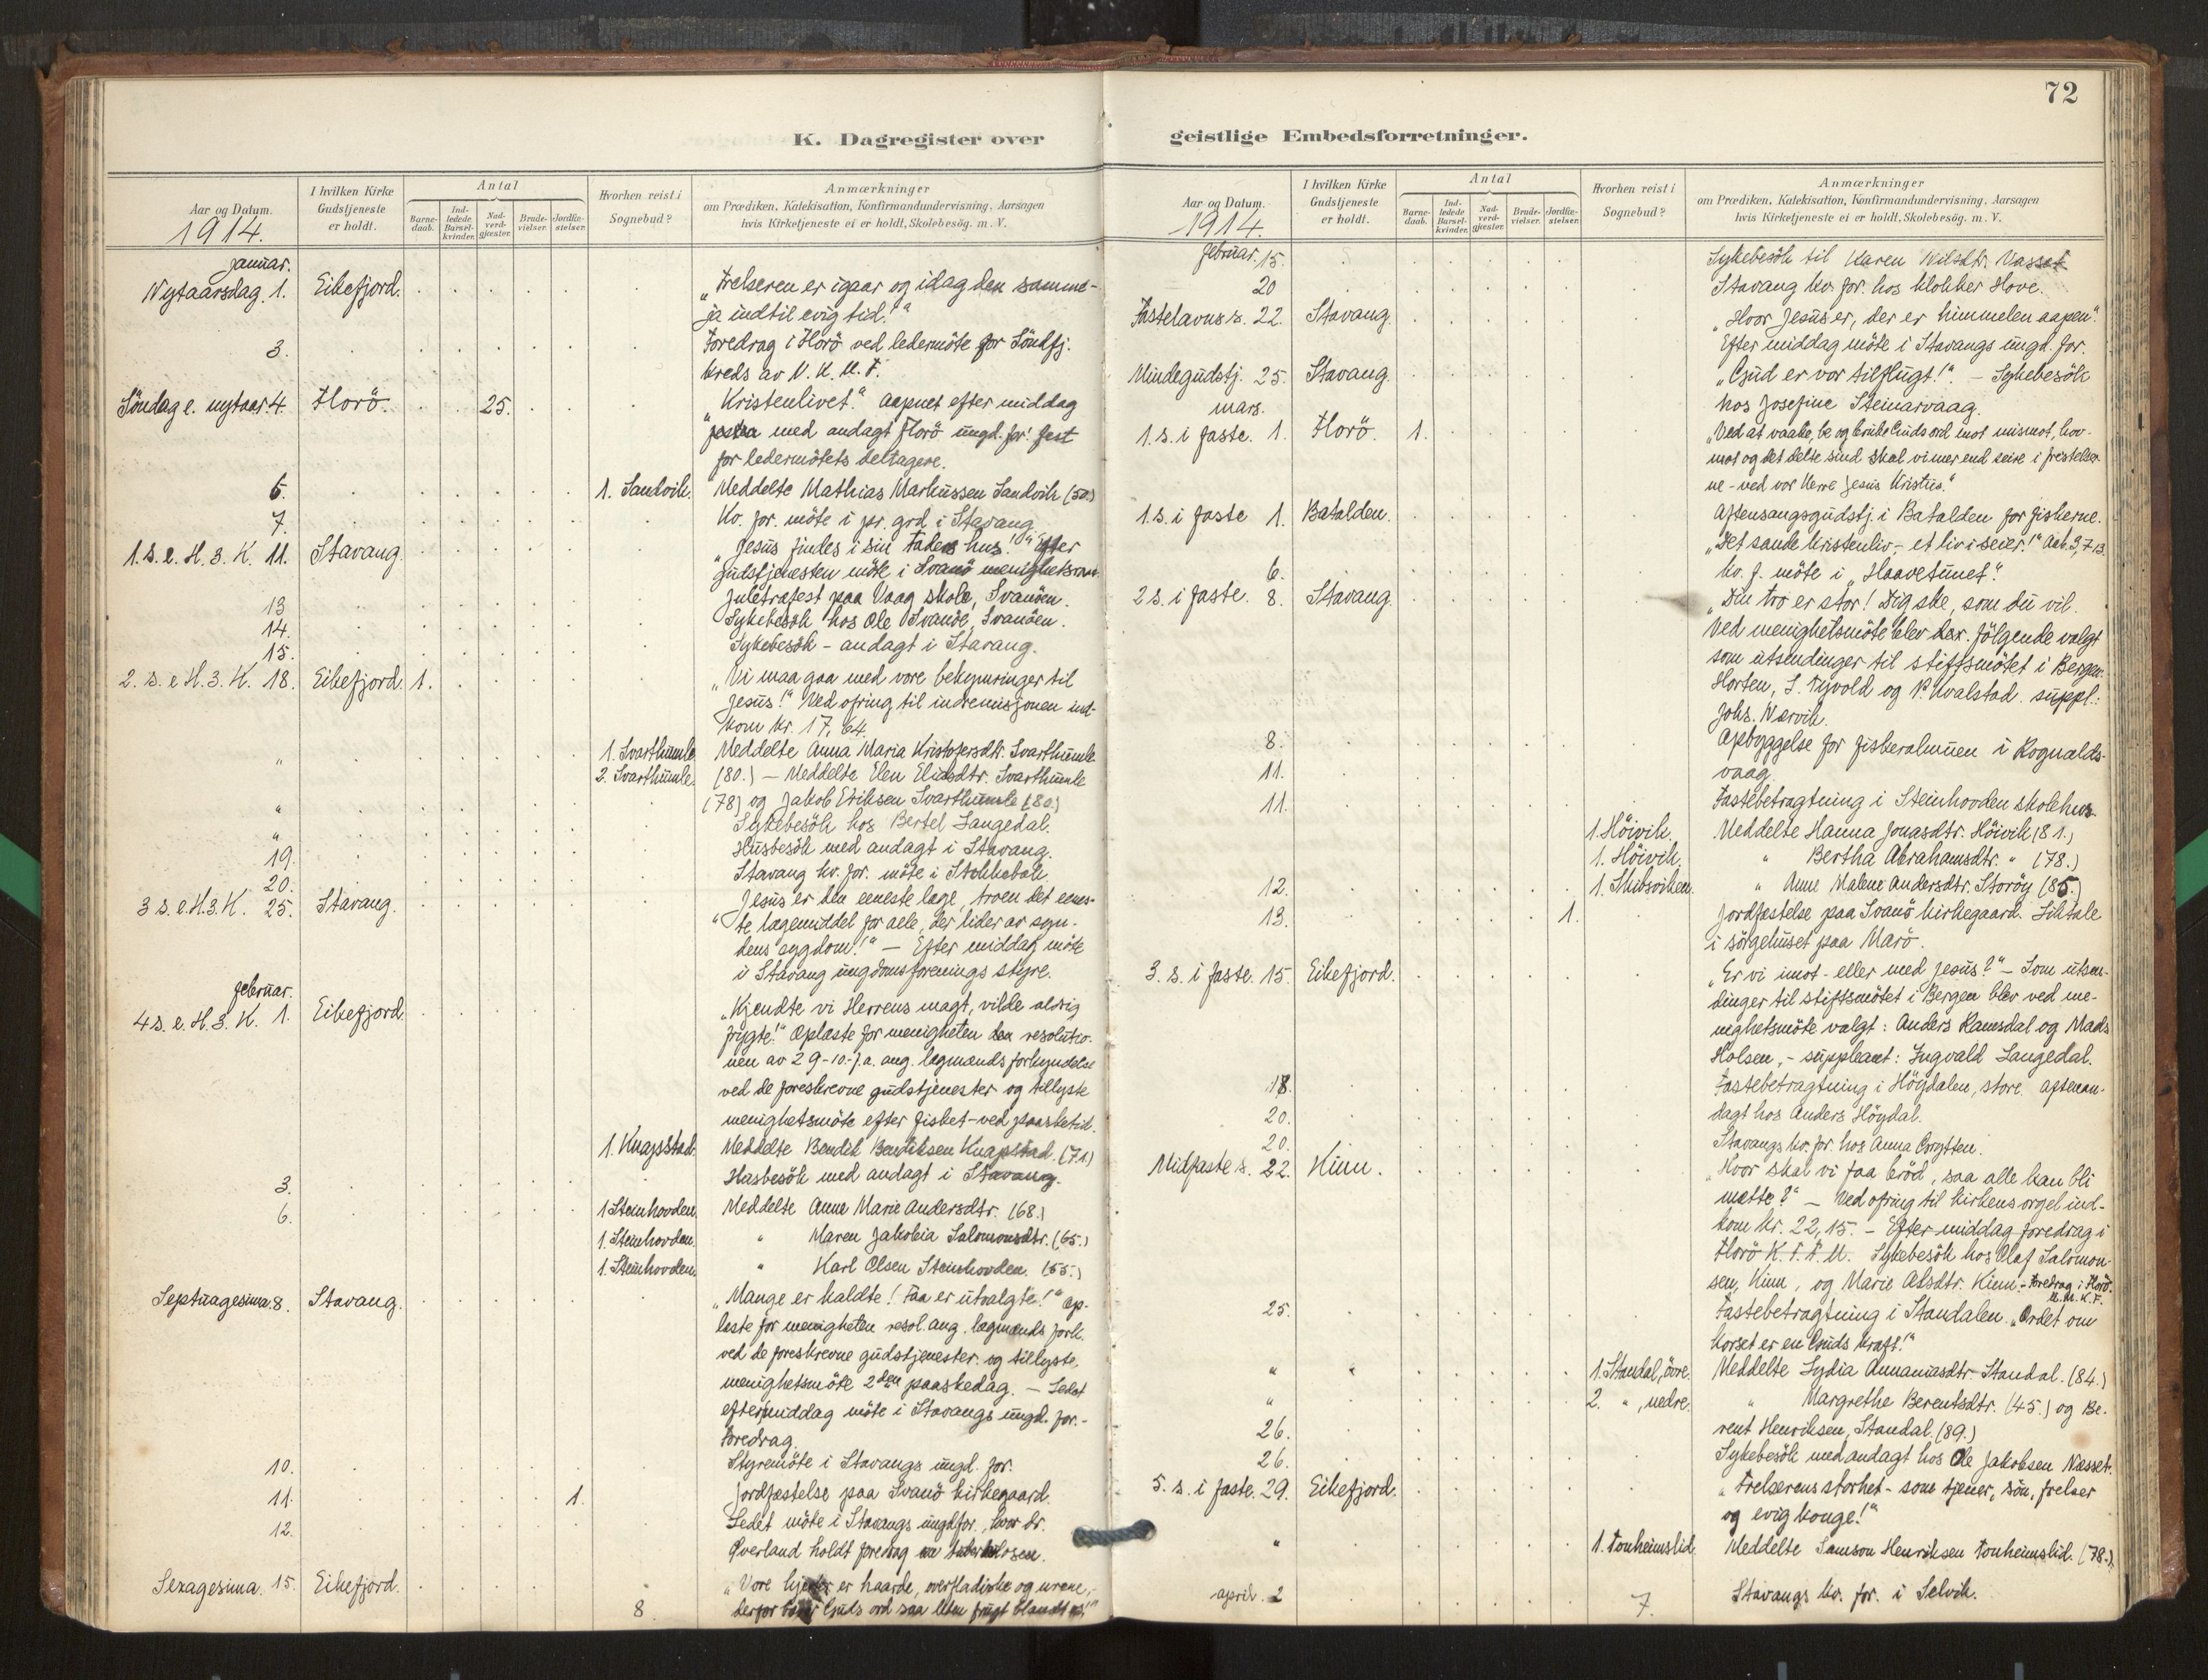 72
K. Dagregister over
Aar og Datum.
1914.
I hvilken Kirke
Gudstjeneste
er holdt.
Antal
Barne-
daab.
Ind-
ledede
Barsel-
kvinder.
Nad-
verd-
gjæster.
Brude-
vielser.
Jordfæ-
stelser.
Hvorhen reist i
Sognebud?
Anmærkninger
om Prædiken, Katekisation, Konfirmandundervisning, Aarsagen
hvis Kirketjeneste ei er holdt, Skolebesøg. m. V.
januar.
Nytaarsdag. 1. Eikefjord. „Frelseren er igaar og idag den samme-
ja indtil evig tid!"
3. Foredrag i Florö ved ledermöte for Söndfj.
kreds av N. K. U. F.
Söndag e. nytaar 4. Florö. 25. „Kristenlivet." Aapnet efter middag
med andagt Florö ungd. for! fest
for ledermötets deltagere.
6. 1. Sandvik. Meddelte Mathias Markussen Sandvik (50.)
7. Kv. for. möte i pr. grd i Stavang.
1. s. e. H. 3. K. 11. Stavang. „Jesus findes i sin Faders hus!" Efter
gudstjenesten möte i Svanö
13 Juletræfest paa Vaag skole, Svanöen.
14. Sykebesök hos Ole Svanöe, Svanöen.
15. Sykebesök - andagt i Stavang.
2. s. e H. 3. K. 18. Eikefjord. 1. „Vi maa gaa med vore bekymringer til
Jesus!" Ved ofring til indremisjonen ind-
kom kr. 17,64.
" 1. Svarthumle. Meddelte Anna Maria Kristofersdtr. Svarthumle
2. Svarthumle. (80.) – Meddelte Elen Eliasdtr. Svarthumle
(78) og Jakob Eriksen Svarthumle (80.)
" Sykebesök hos Bertel Langedal.
19. Husbesök med andagt i Stavang.
20. Stavang kv. for. möte i Stokkebæk.
3 s. e. H. 3. K. 25. Stavang. Jesus er den eneste læge, troen det enes-
te lægemiddel for alle, der lider av syn-
dens sygdom!" – Efter middag möte
i Stavang ungdomsforenings styre.
februar.
4 s. e. H. 3. K. 1. Eikefjord. „Kjendte vi Herrens magt, vilde aldrig
frygte!" Oplæste for menigheten resolutio-
nen av 29-10-f.a. ang. lægmænds forkyndelse
ved de foreskrevne gudstjenester og tillyste
menighetsmöte efter fisket – ved paasketid.
1. Knapstad. Meddelte Bendik Bendiksen Knapstad. (71.)
3. Husbesök med andagt i Stavang.
6. 1 Steinhovden. Meddelte Anne Marie Andersdtr. (68.)
1. Steinhovden. " Maren Jakobia Salomonsdtr. (65.)
1. Steinhovden. " Karl Olsen Steinhovden. (55.)
Septuagesima. 8. Stavang. „Mange er kaldte! Faa er utvalgte!" Op-
læste for menigheten resol. ang. lægmænds fork.
ved de foreskrevne gudstjenester. og tillyste,
menighetsmöte 2den paaskedag. – Ledet
eftermiddag möte i Stavangs ungd. for. -
foredrag.
10. Styremöte i Stavangs ungd. for.
11. 1. Jordfæstelse paa Svanö kirkegaard.
12. Ledet möte i Stavangs ungdfor., hvor dr.
Överland holdt foredrag om tuberkulosen.
Sexagesima. 15. Eikefjord. „Vore hjerter er haarde, overfladiske og urene,
8 derfor bærer Guds ord saa liten frugt blandt os!"
geistlige Embedsforretninger.
Aar og Datum.
1914.
I hvilken Kirke
Gudstjeneste
er holdt.
Antal
Barne-
daab.
Ind-
ledede
Barsel-
kvinder.
Nad-
verd-
gjæster.
Brude-
vielser.
Jordfæ-
stelser.
Hvorhen reist i
Sognebud?
Anmærkninger
om Prædiken, Katekisation, Konfirmandundervisning, Aarsagen
hvis Kirketjeneste ei er holdt, Skolebesög. m. V.
februar. 15. Sykebesök til Karen Nilsdtr. Vasset
20 Stavang kv. for. hos klokker Hove.
Fastelavns s. 22. Stavang. „Hvor Jesus er, der er himmelen aapen".
Efter middag möte i Stavangs ungd. for.
Mindegudstj. 25. Stavang. „Gud er vor tilflugt!" – Sykebesök
hos Josefine Steinarvaag.
mars.
1. s. i faste. 1. Florö. 1. „Ved at vaake, be og bruke Guds ord mot mismot, hov-
mot og det delte sind skal vi mer end seire i fristelser
ne - ved vor Herre Jesus Kristus."
1. s. i faste 1. Batalden. Aftensangsgudstj. i Batalden for fiskerne.
„Det sande kristenliv, - et liv i seier!" Aab. 3,7-13.
6. Kv. f. möte i „Haavetunet".
2 s. i faste. 8. Stavang. „Din tro er stor! Dig ske, som du vil.
Ved menighetsmöte blev der. fölgende valgt
som utsendinger til stiftsmötet i Bergen:
Horten, S. Tyvold og P. Kvalstad. suppl.:
Johs. Nærvik.
8. Opbyggelse for fiskeralmuen i Rognalds-
11. vaag.
11. Fastebetragtning i Steinhovden skolehus.
1. Höivik. Meddelte Hanna Jonasdtr. Höivik (81.)
1. Höivik. " Bertha Abrahamsdtr. " (78.)
12. 1. Skibsviken. " Anne Malene Andersdtr. Storöy (85.)
13. 1. Jordfæstelse paa Svanö kirkegaard. Liktale
i sörgehuset paa Marö.
3. s. i faste. 15. Eikefjord. „Er vi imot - eller med Jesus?" – Som utsen-
dinger til stiftsmötet i Bergen blev ved me-
nighetsmöte valgt: Anders Ramsdal og Mads
Holsen, - suppleant: Ingvald Langedal.
18. Fastebetragtning i Högdalen, store. aftenan-
20. dagt hos Anders Högdal.
20. Stavangs kv. for. hos Anna Grytten.
Midfaste s. 22. Kinn. „Hvor skal vi faa bröd, saa alle kan bli
mætte?" – Ved ofring til kirkens orgel ind-
kom kr. 22,15. – Efter middag foredrag i
Florö K. F. F. M. Sykebesök hos Olaf Salomon
sen, Kinn, og Marie Absdtr. Kinn. - Foredrag i Florö
U. M. K. F.
25. Fastebetragtning i Standalen. „Ordet om
korset er en Guds kraft!"
" 1. Standal, övre. Meddelte Lydia Annaniasdtr. Standal. (84.)
" 2. " , nedre. " Margrethe Berentsdtr. (45.) og Be-
26. rent Henriksen, Standal. (89.)
26. Sykebesök med andagt hos Ole Jakobsen Næsset.
5. s. i faste. 29. Eikefjord. „Frelserens storhet - som tjener, sön, frelser
og evig konge!"
" 1. Tonheimslid. Meddelte Samson Henriksen Tonheimslid. (78.)
april. 2 7. Stavangs kv. for. i Selvik.